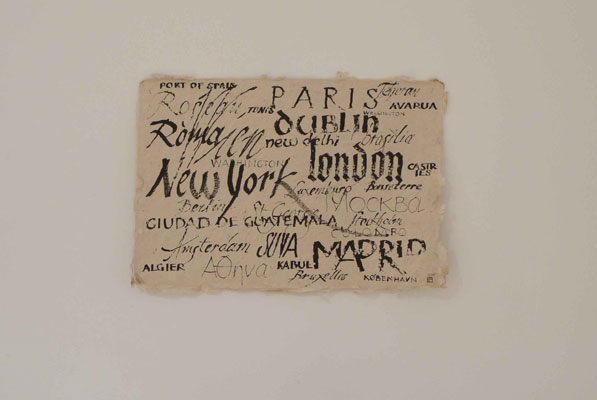 PORT OF SPAIN PARIS Teheran
TUNIS WELLINGTON AVARUA
Roma DUBLIN
new delhi Brasilia
WASHINGTON london CASTR
IES
New York Luxemburg Basseterre
Berlin St George МОСКВА
CIUDAD DE GUATEMALA Stockholm
Amsterdam SUVA MADRID
ALGIER Αθηνα KABUL Bruxelles KØBENHAVN